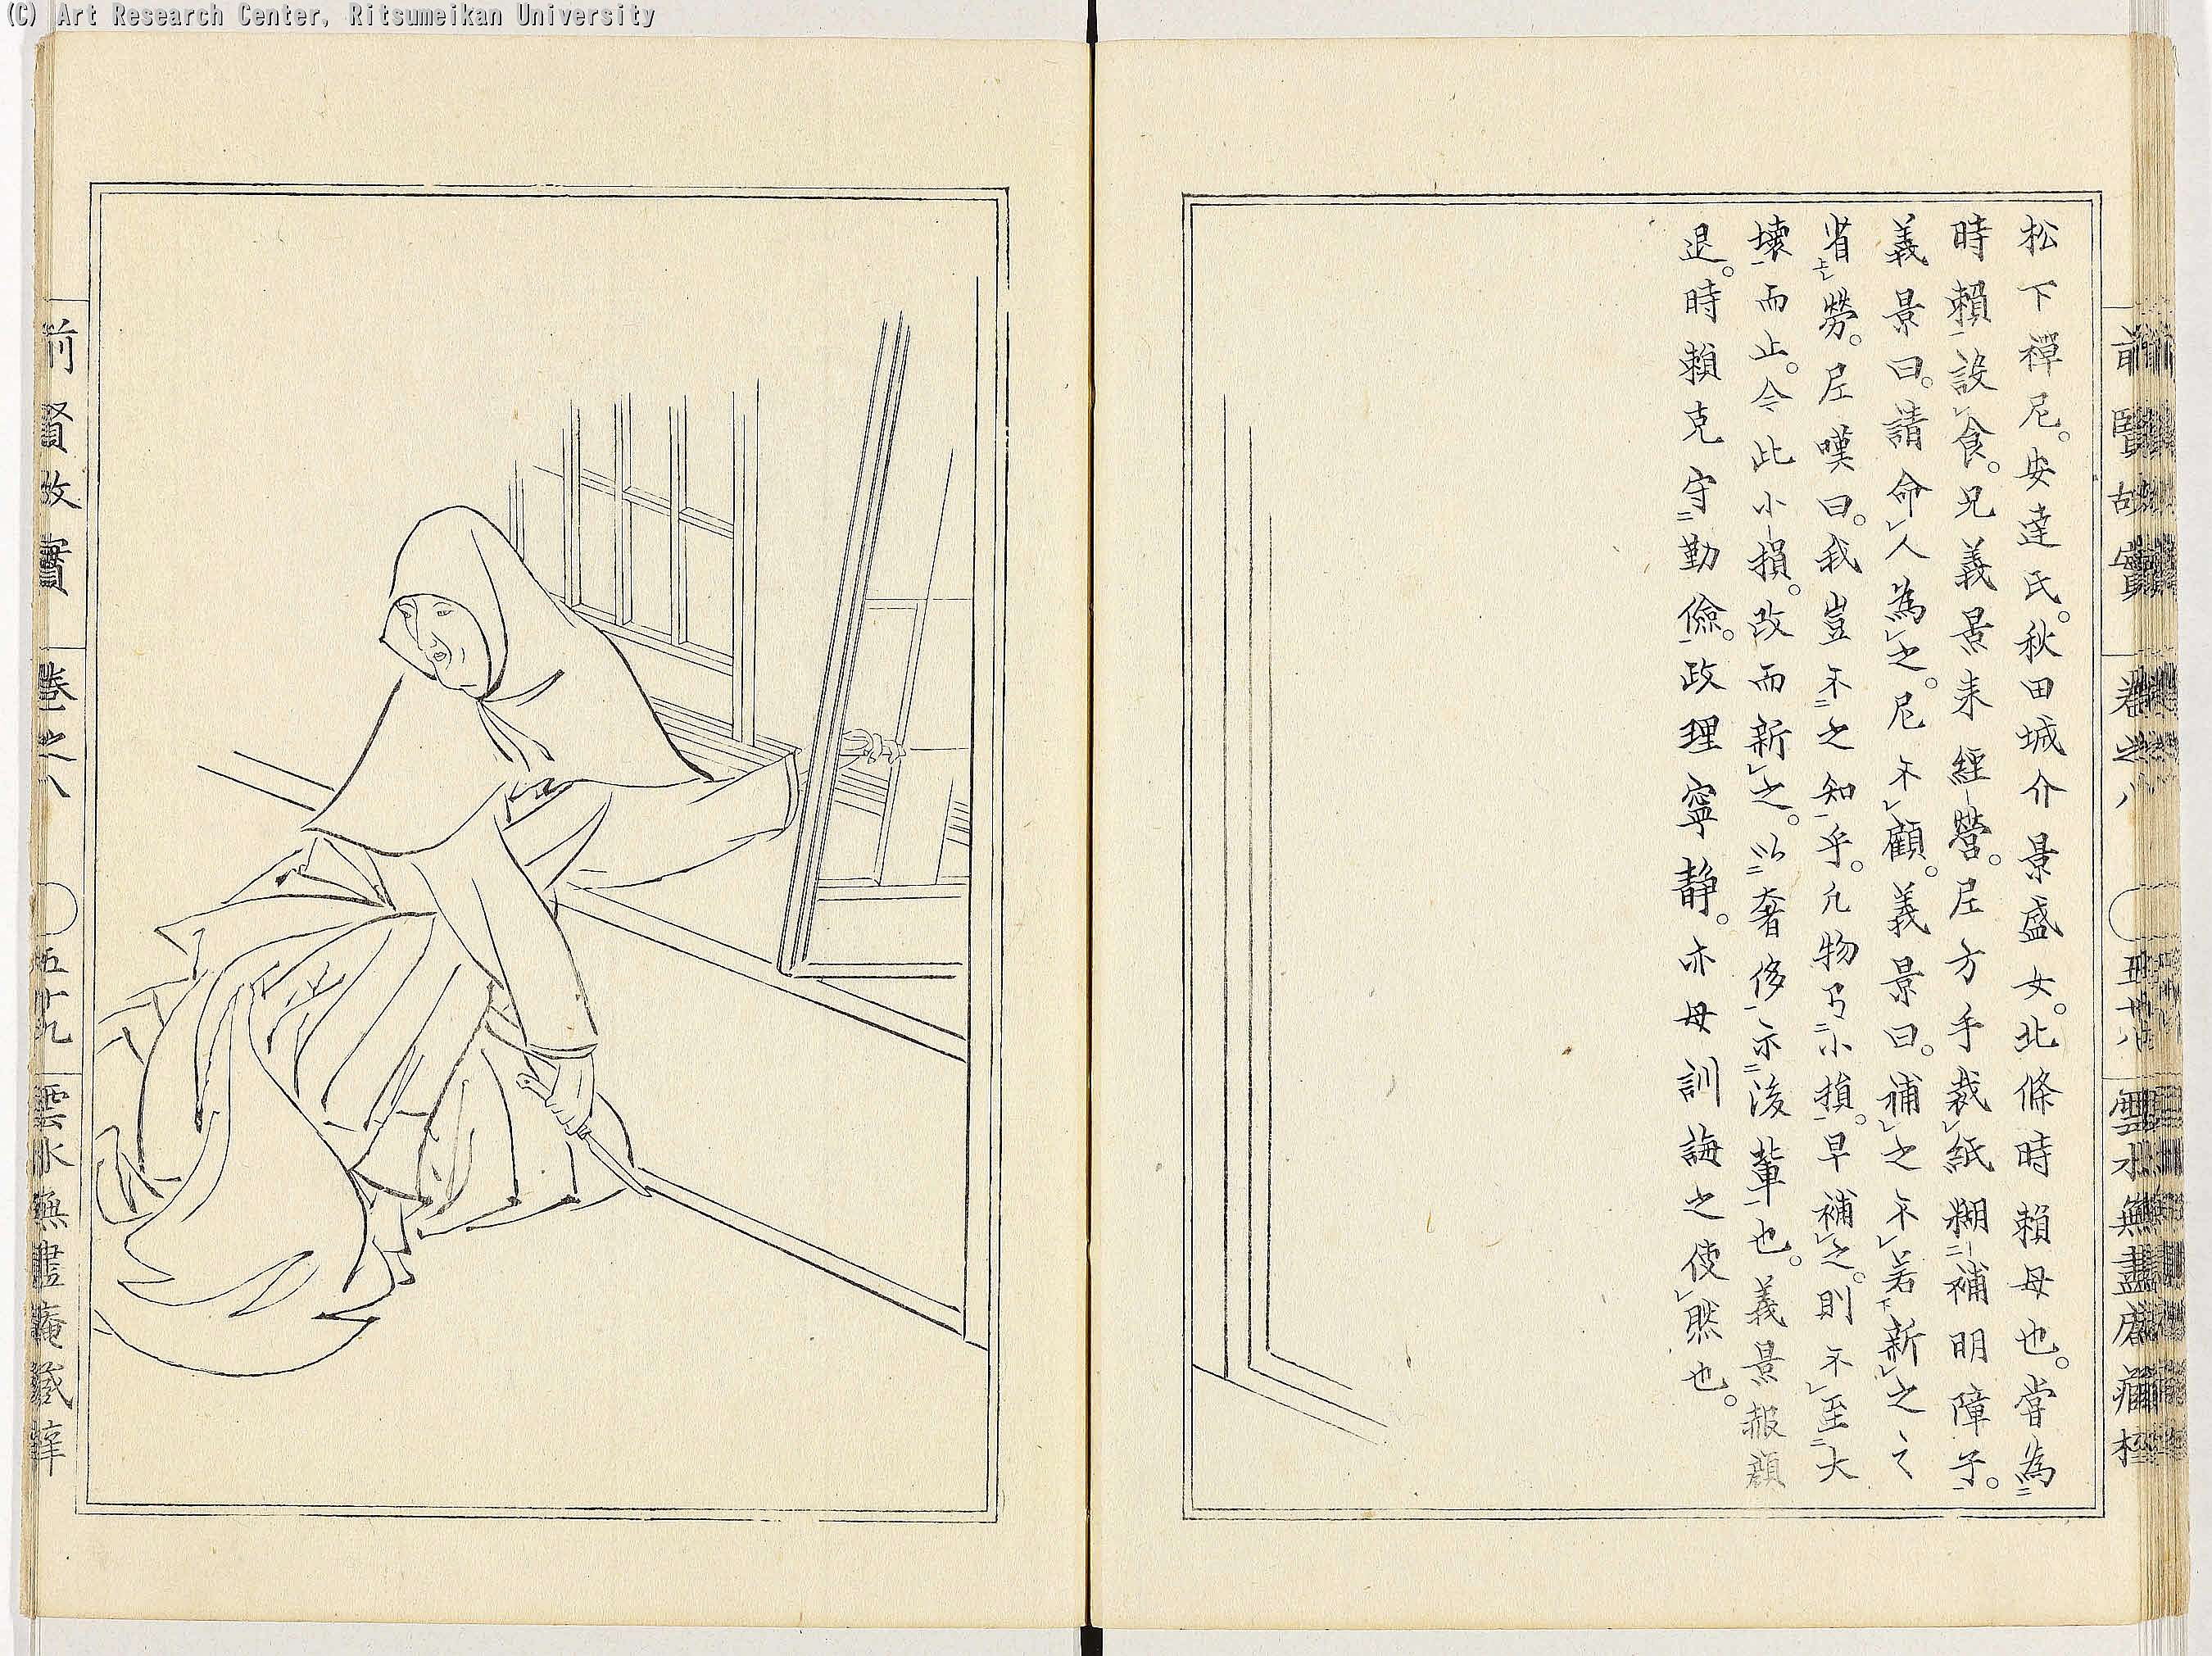 (C) Art Research Center, Ritsumeikan University
松下禪尼。安達氏。秋田城介景盛女。北條時賴母也。嘗為二
時賴一設レ食。兄義景来經-營。尼方手裁レ紙糊二-補明障子一。
義景曰。請命レ人為レ之。尼不レ顧。義景曰。補レ之不レ若下新レ之之
省上レ勞。尼嘆曰。我豈不二之知一乎。凡物乃二小損一。早補レ之。則不レ至二大
壊一而止。今此小-損。改而新レ之。以二奢侈一示二後輩一也。義景赧顔
退。時賴克守二勤儉一。政理寧静。亦母訓誨之使レ然也。
前賢故實 卷之八 五十八 雲水無盡庵藏梓
前賢故實 卷之八 五十九 雲水無盡庵藏梓